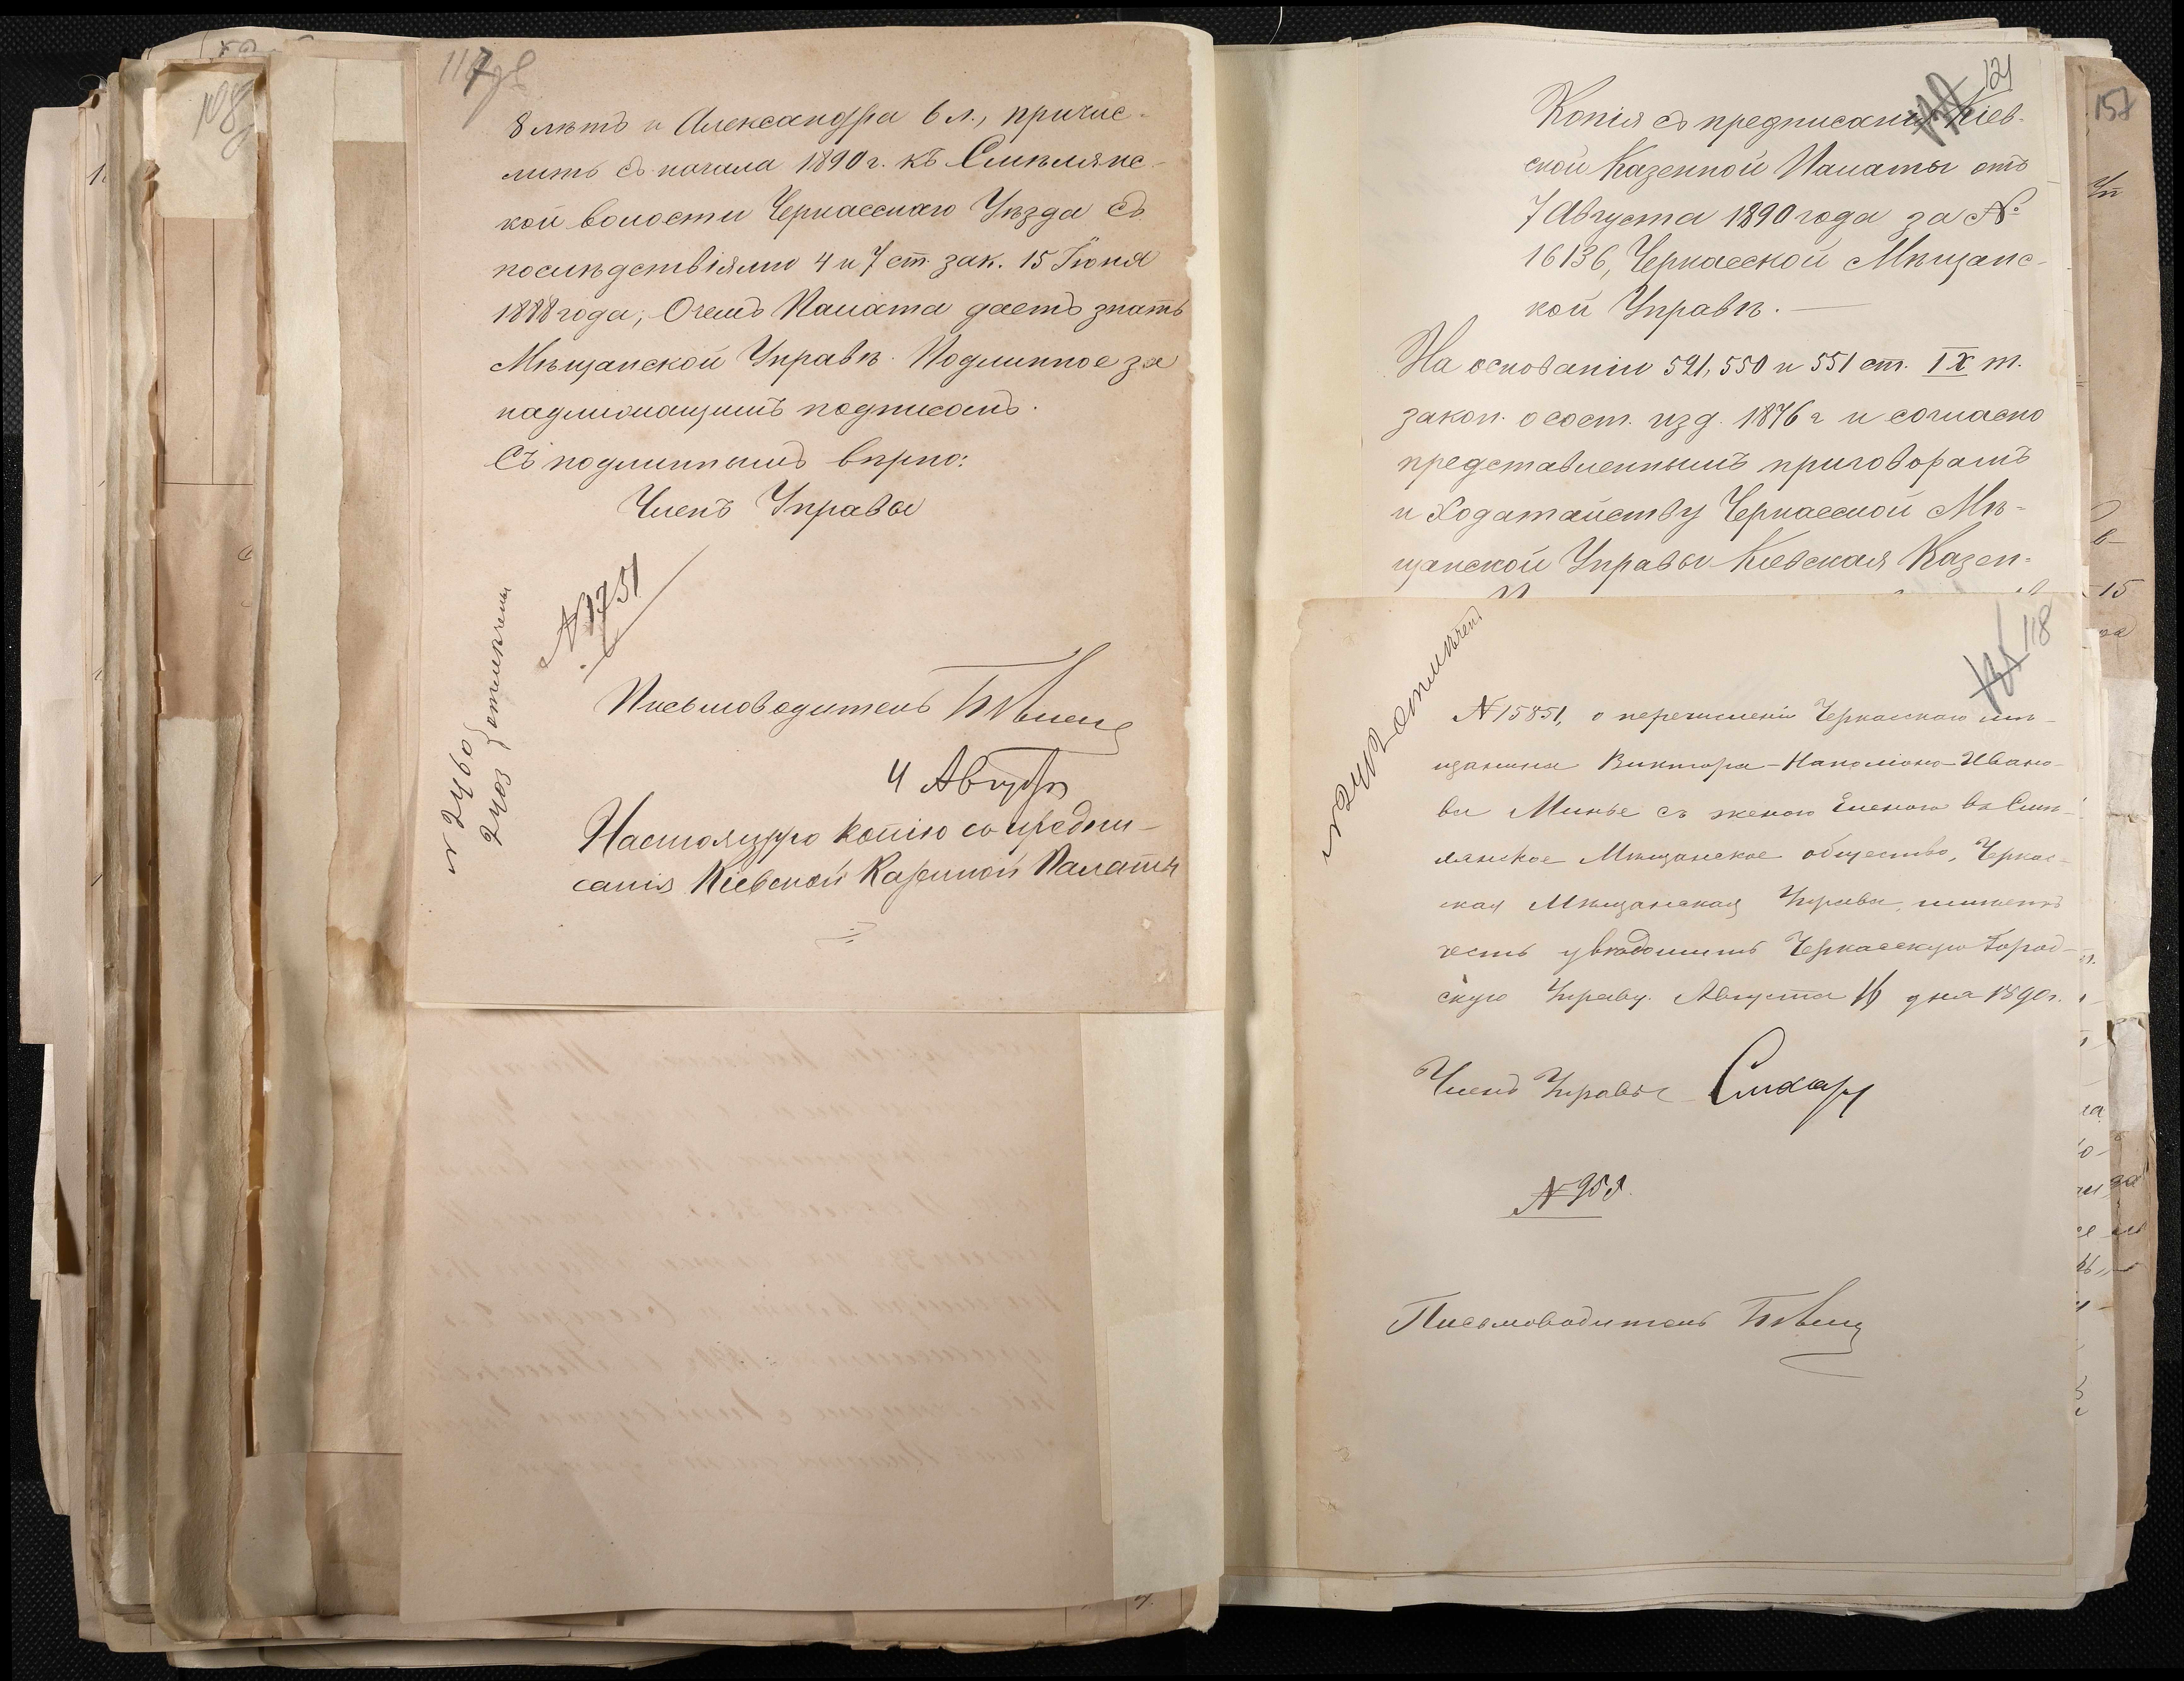 117
8 лѣтъ и Александра 6 л., причис-
лить съ начала 1890 г. къ Смѣлянс-
кой волости Черкасскаго Уѣзда съ
послѣдствіями 4 и 7 ст. зак. 15 Іюня
1888 года; О чемъ Палата даетъ знать
Мѣщанской Управѣ. Подлинное за
надлежащимъ подписомъ.
Съ подлиннымъ вѣрно:
Членъ Управы
№ 1751
Письмоводитель
4 Августа
Настоящую копію со предпи-
санія Кіевской Казенной Палаты
№ 2460
2403
отмѣчены
108
121
Копія съ предписанія Кіев-
ской Казенной Палаты отъ
7 Августа 1890 года за №
16136, Черкасской Мѣщанс-
кой Управѣ. —
На основаніи 521, 550 и 551 ст. IX т.
закон. о сост. изд. 1876 г и согласно
представленнымъ приговорамъ
и ходатайству Черкасской Мѣ-
щанской Управы Кіевская Казен-
118
отмѣчен.
№ 15851, о перечисленіи Черкасскаго мѣ-
щанина Виктора-Наполіона Ивано-
ва Минье съ женою Еленою въ Смѣ-
лянское Мѣщанское общество, Черкас-
ская Мѣщанская Управа, имѣетъ
честь увѣдомить Черкасскую Город-
скую Управу. Августа 16 дня 1890 г.
Членъ Управы
№ 958.
Письмоводитель
157
15